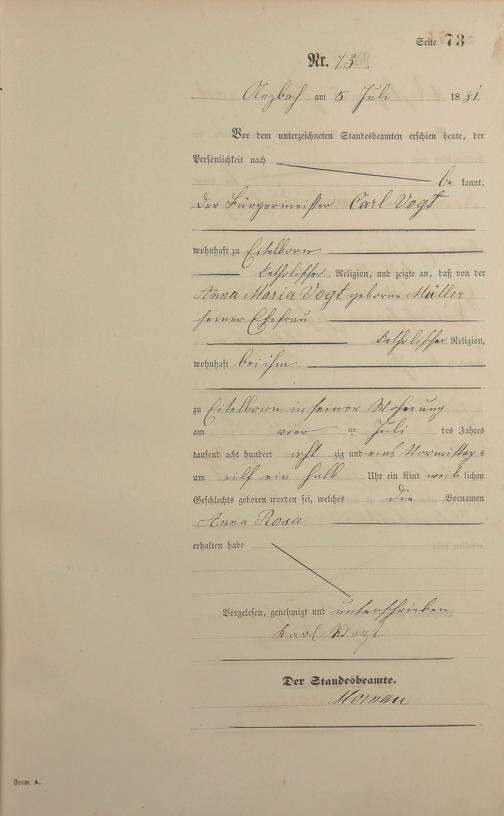 Seite 73
Nr. 73
Arzbach am 5 Juli 1881.
Vor dem unterzeichneten Standesbeamten erschien heute, der
Persönlichkeit nach
be kannt,
der Bürgermeister Carl Vogt
wohnhaft zu Eitelborn
katholischer Religion, und zeigte an, daß von der
Anna Maria Vogt geborne Müller
seiner Ehefrau
katholischer Religion,
wohnhaft bei ihm
zu Eitelborn in seiner Wohnung
am vier ten Juli des Jahres
tausend acht hundert acht zig und eins Vormittag s
um eilf ein halb Uhr ein Kind weib lichen
Geschlechts geboren worden sei, welches die Vornamen
Anna Rosa
erhalten habe
Vorgelesen, genehmigt und unterschrieben
Karl Vogt
Der Standesbeamte.
Form. A.